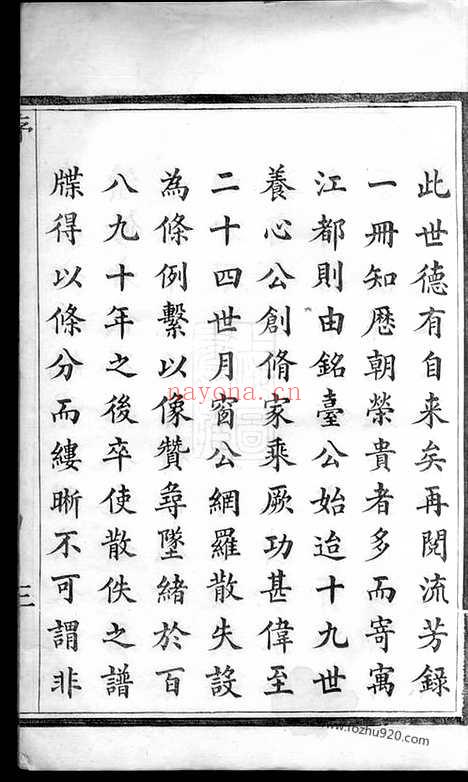 此世德有自来矣再閱流芳錄
一冊知歷朝榮貴者多而寄寓
江都則由銘臺公始迨十九世
養心公創脩家乘厥功甚偉至
二十四世月窗公網羅散失設
為條例繫以像贊尋墜緒於百
八九十年之後卒使散佚之譜
牒得以條分而縷晰不可謂非
序
三
nayona.cn
www.fozhu920.com